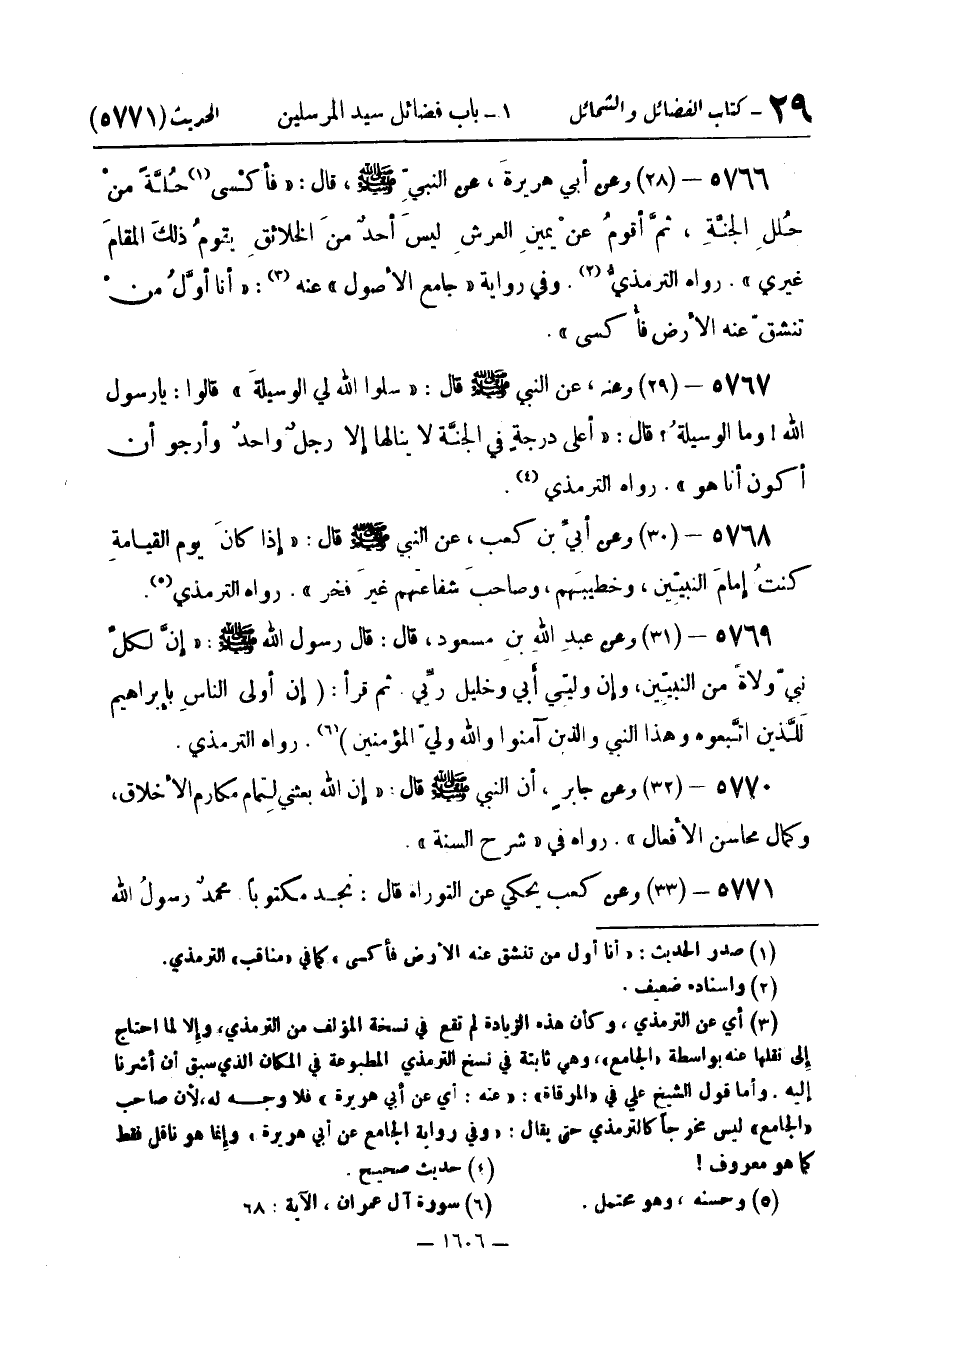 ٢٩ - كتاب الفضائل والشمائل ١ - باب فضائل سيد المرسلين الحديث (٥٧٧١)
٥٧٦٦ – (٢٨) وعن أبي هريرةَ ، عن النبيِّ ﷺ ، قال : « فأكْسى(١) حُلَّةً منْ
حُللِ الجنَّةِ ، ثمَّ أقومُ عنْ يمينِ العرشِ ليسَ أحدٌ منَ الخلائقِ يقومُ ذلكَ المقامَ
غيري » . رواه الترمذيُّ(٢) . وفي رواية « جامع الأصول » عنه (٣) : « أنا أوَّلُ منْ
تنشقّ عنه الأرض فأُكسى » .
٥٧٦٧ – (٢٩) وعنه ، عن النبي ﷺ قال : « سلوا الله لي الوسيلةَ » قالوا : يارسول
الله ! وما الوسيلةُ ؟ قال : « أعلى درجةٍ في الجنَّة لا ينالها إلا رجلٌ واحدٌ وأرجو أن
أكون أنا هو » . رواه الترمذي (٤) .
٥٧٦٨ – (٣٠) وعن أبيِّ بن كعب ، عن النبي ﷺ قال : « إذا كانَ يوم القيامةِ
كنتُ إمامَ النبيّين ، وخطيبَهم ، وصاحبَ شفاعتهم غيرَ فخر » . رواه الترمذي(٥).
٥٧٦٩ – (٣١) وعن عبدِ اللهِ بنِ مسعود ، قال : قال رسول الله ﷺ : « إنَّ لكلِّ
نبيّ ولاةً من النبيّين، وإن وليّي أبي وخليل ربّي . ثم قرأ : ( إن أولى الناسِ بإبراهيم
لَلَّذين اتَّبعوه وهذا النبي والذين آمنوا والله وليّ المؤمنين )(٦) . رواه الترمذي .
٥٧٧٠ – (٣٢) وعن جابرٍ ، أن النبي ﷺ قال : « إن الله بعثني لتمام مكارم الأخلاق،
وكمال محاسن الأفعال » . رواه في « شرح السنة » .
٥٧٧١ – (٣٣) وعن كعب يحكي عن التوراه قال : نجد مكتوباً محمدٌ رسولُ الله
(١) صدر الحديث : « أنا أول من تنشق عنه الأرض فأكسى » كما في «مناقب» الترمذي.
(٢) واسناده ضعيف .
(٣) أي عن الترمذي ، وكأن هذه الزيادة لم تقع في نسخة المؤلف من الترمذي، وإلا لما احتاج
إلى نقلها عنه بواسطة «الجامع»، وهي ثابتة في نسخ الترمذي المطبوعة في المكان الذي سبق أن أشرنا
إليه . وأما قول الشيخ علي في «المرقاة» : « عنه : أي عن أبي هريرة » فلا وجه له، لأن صاحب
«الجامع» ليس مخرجاً كالترمذي حتى يقال : « وفي رواية الجامع عن أبي هريرة ، وإنما هو ناقل فقط
كما هو معروف ! (٤) حديث صحيح .
(٥) وحسنه ، وهو محتمل . (٦) سورة آل عمران ، الآية : ٦٨
– ١٦٠٦ –